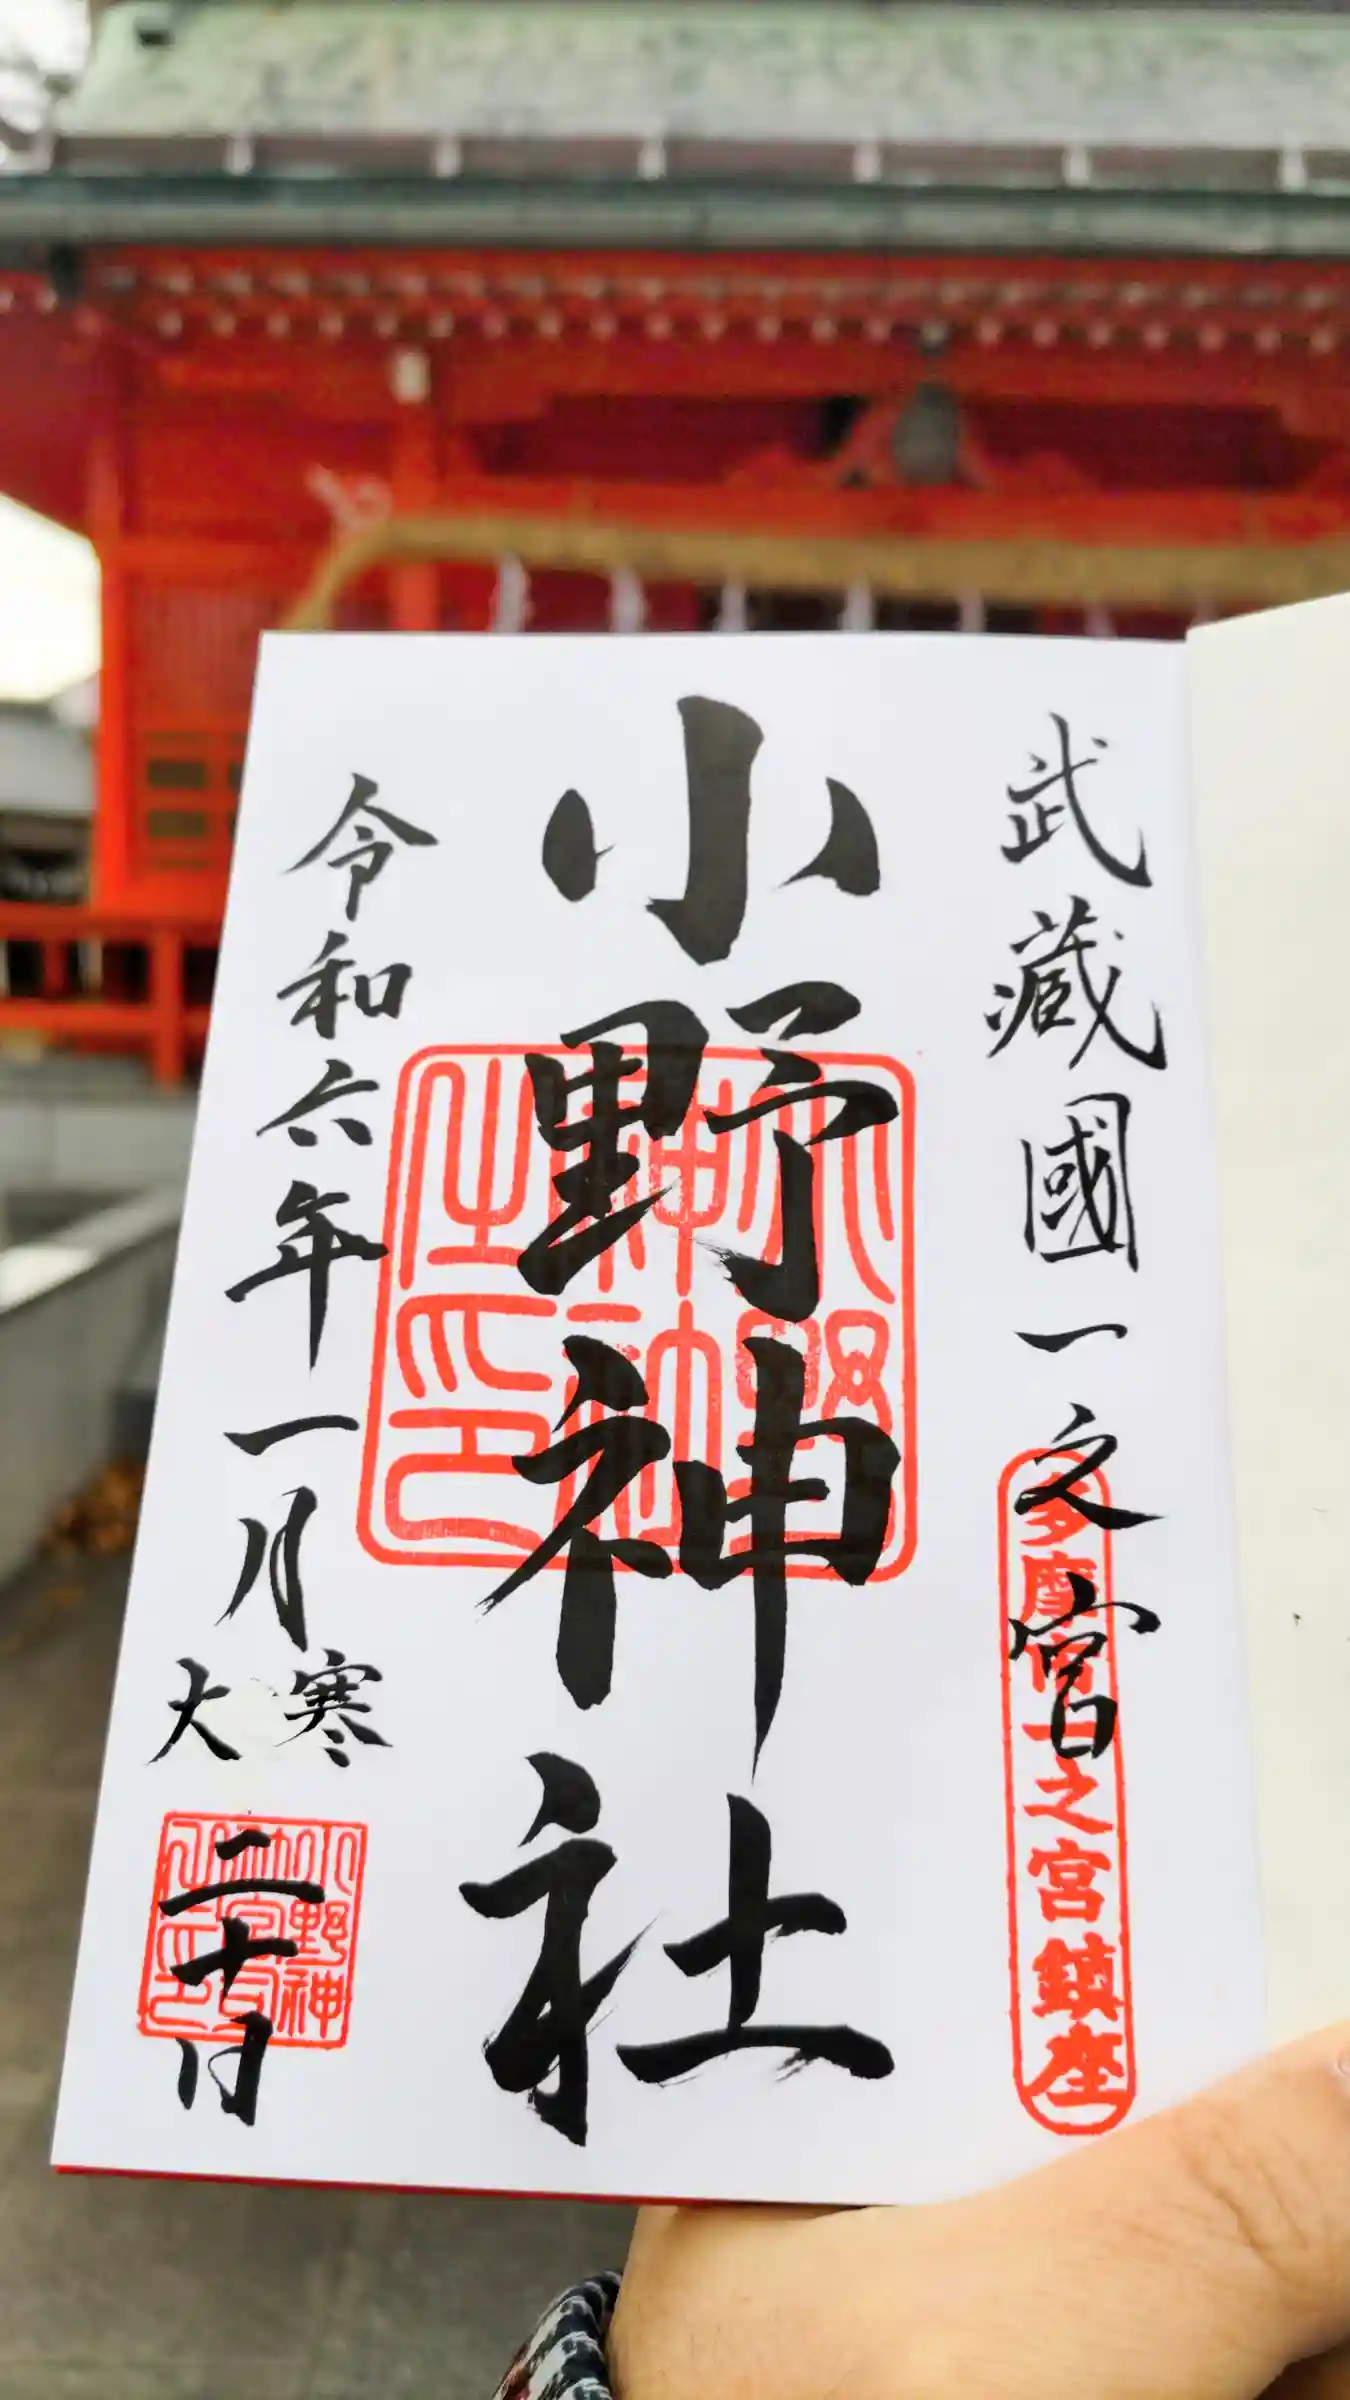 武藏國一之宮
多摩市一之宮鎮座
小野神社
小野神社之印
令和六年一月
大寒
二十日